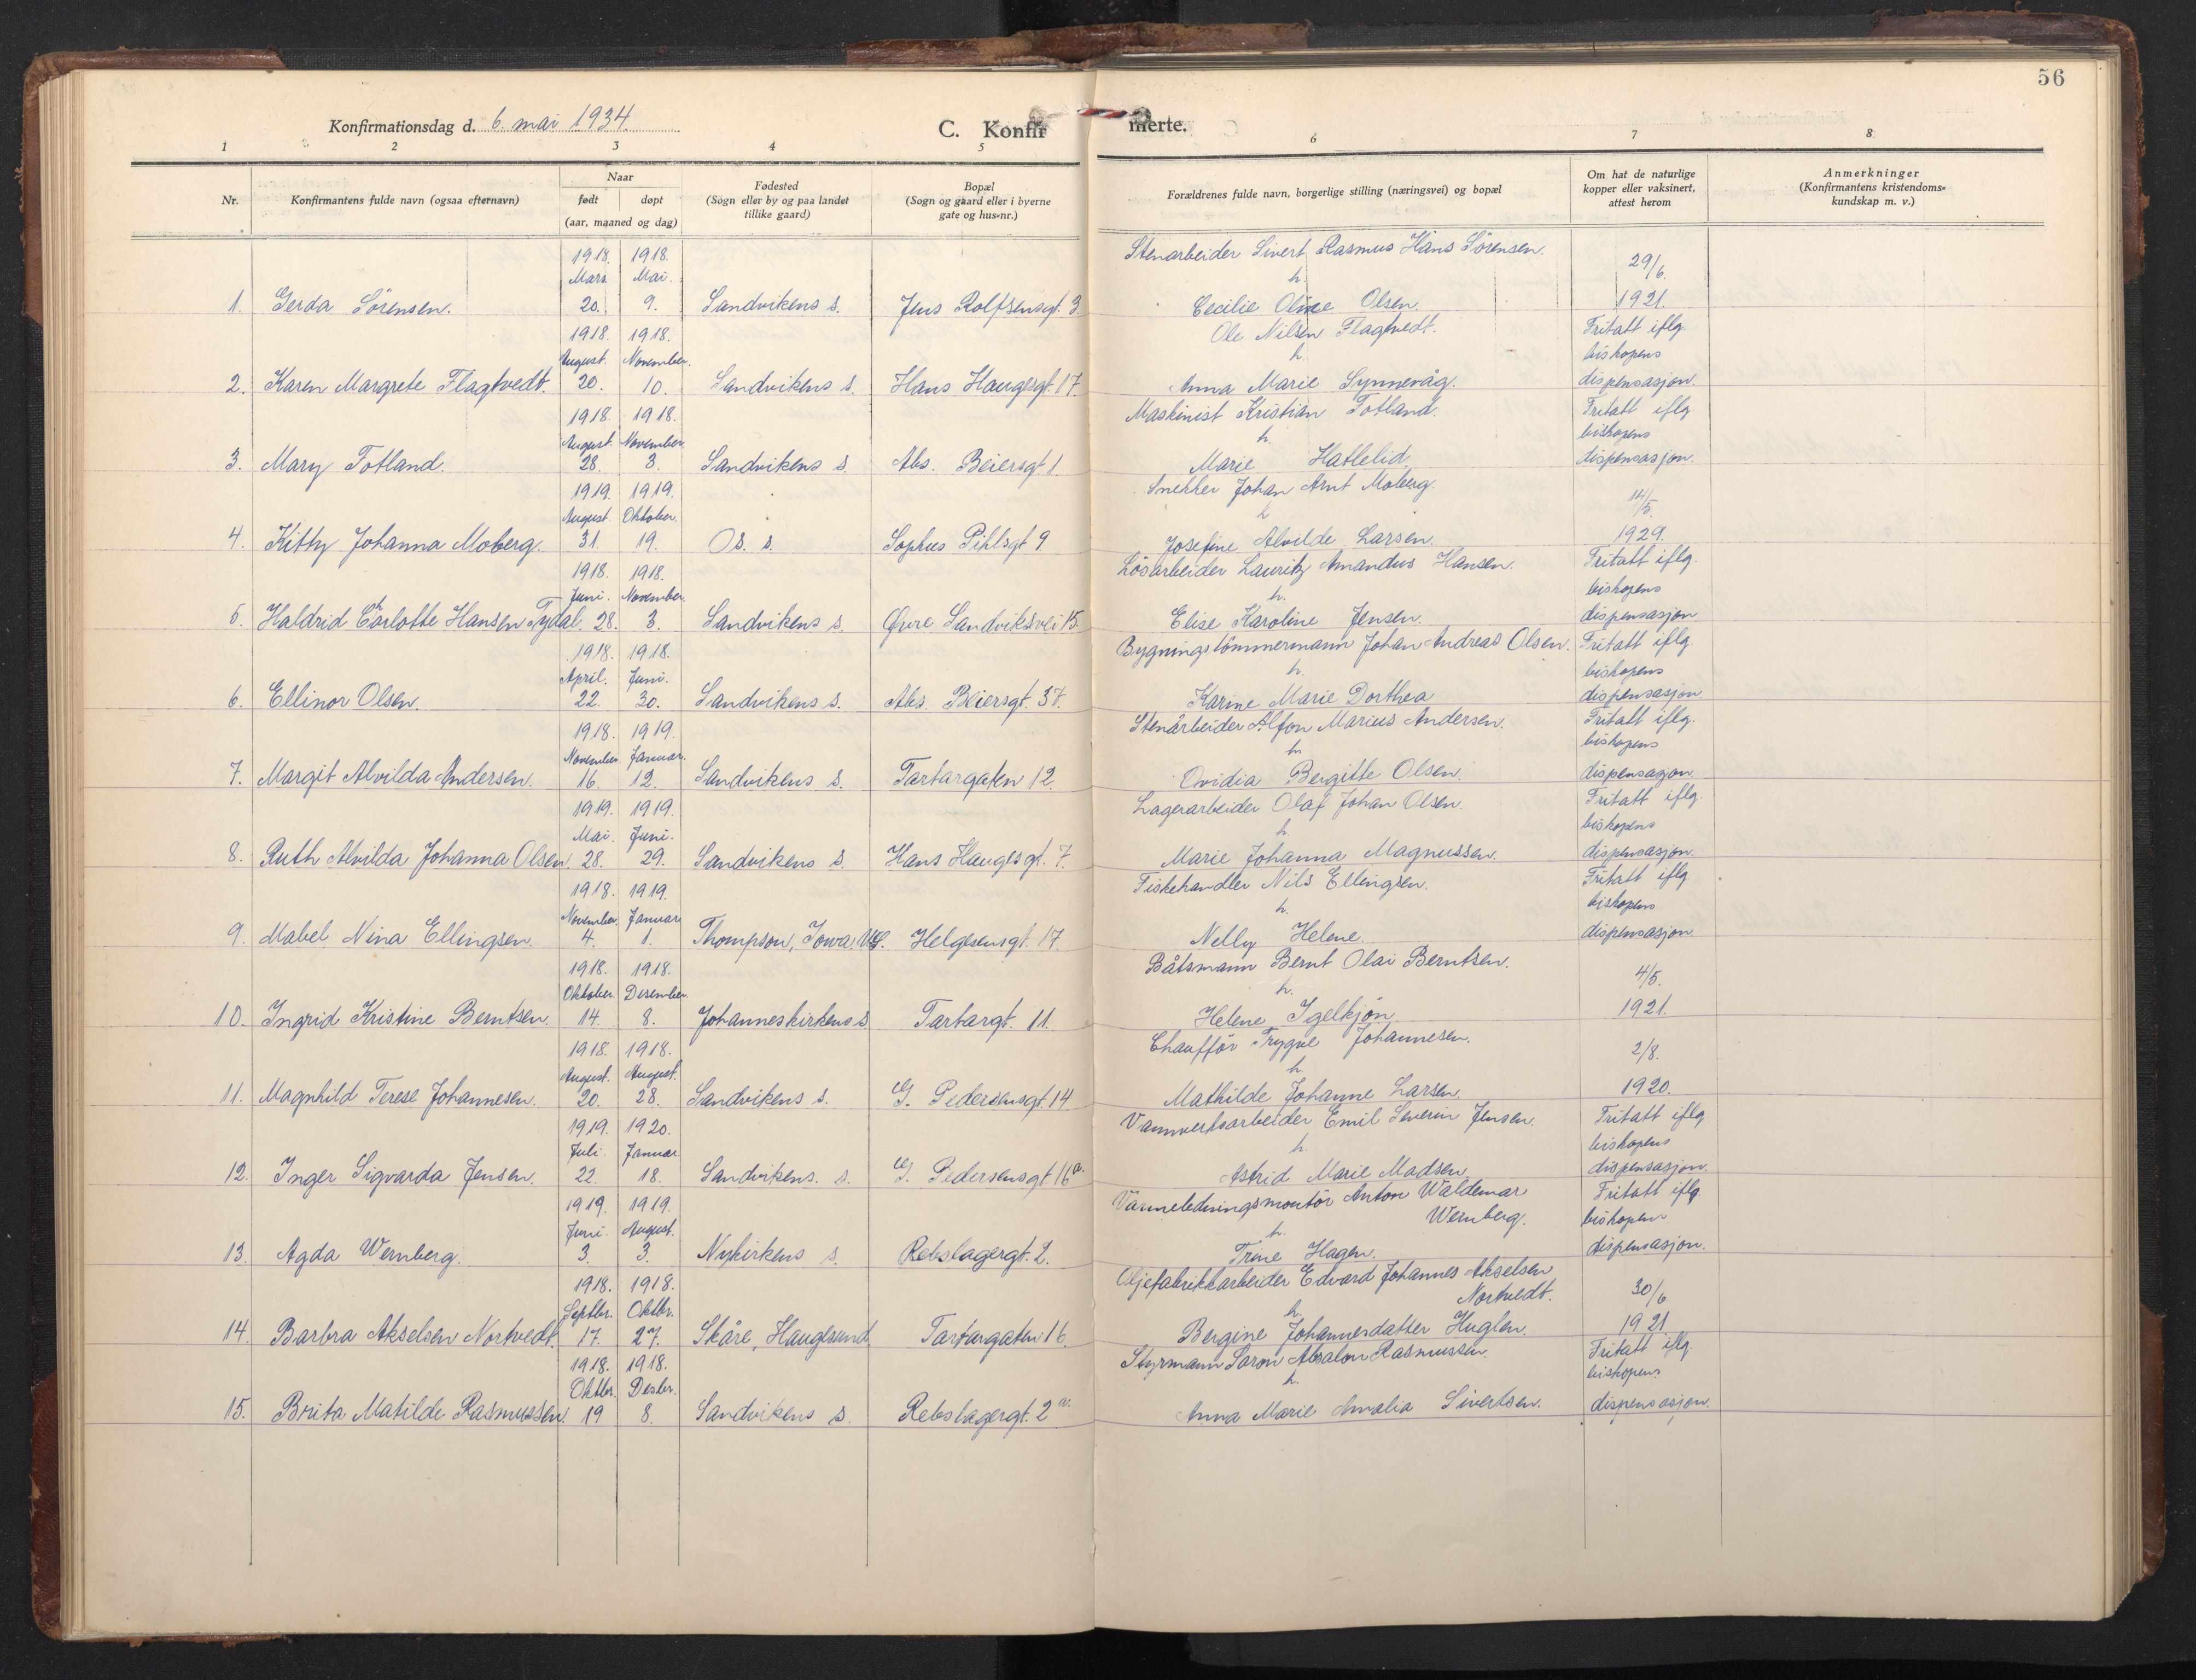 56
Konfirmationsdag d. 6. mai 1934.
C. Konfirmerte.
1 2 3 4 5 6 7 8
Nr.
Konfirmantens fulde navn (ogsaa efternavn)
Naar
født døpt
(aar, maaned og dag)
Fødested
(Sogn eller by og paa landet
tillike gaard)
Bopæl
(Sogn og gaard eller i byerne
gate og hus-nr.)
Forældrenes fulde navn, borgerlige stilling (næringsvei) og bopæl
Om hat de naturlige
kopper eller vaksinert,
attest herom
Anmerkninger
(Konfirmantens kristendoms-
kundskap m. v.)
1918. 1918. Stenarbeider Sivert Rasmus Hans Sörensen.
Mars Mai. h. 29/6.
1. Gerda Sörensen. 20. 9. Sandvikens s. Jens Rolfsensgt. 3 Cecilie Oline Olsen. 1921.
1918. 1918. Ole Nilsen Flagtvedt. Fritatt iflg.
August. November. h. biskopens
2. Karen Margrete Flagtvedt. 20. 10. Sandvikens s. Hans Haugesgt. 17. Anna Marie Synnevåg. dispensasjon.
1918. 1918. Maskinist Kristian Totland. Fritatt iflg.
August. November. h. biskopens
3. Mary Totland. 28. 3. Sandvikens s. Abs. Beiersgt. 1. Marie Hatlelid. dispensasjon.
1919. 1919. Snekker Johan Arnt Moberg. 14/5.
August. Oktober. h.
4. Kitty Johanna Moberg. 31. 19. Os. s. Sophus Pihlsgt 9 Josefine Alvilde Larsen. 1929.
1918. 1918. Lösarbeider Lauritz Amandus Hansen. Fritatt iflg.
Juni. November. h. biskopens
5. Haldrid Charlotte Hansen Tydal. 28. 3. Sandvikens s. Øvre Sandviksvei 15. Elise Karoline Jensen. dispensasjon
1918. 1918. Bygningstömmermann Johan Andreas Olsen. Fritatt iflg.
April. Juni. h. biskopens
6. Ellinor Olsen. 22. 30. Sandvikens s. Abs. Beiersgt. 37. Karine Marie Dorthea dispensasjon
1918. 1919. Stenarbeider Alfon Marius Andersen. Fritatt iflg.
November. Januar. h. biskopens
7. Margit Alvilda Andersen. 16. 12. Sandvikens s. Tartargaten 12. Ovidia Bergitte Olsen. dispensasjon.
1919. 1919. Lagerarbeider Olaf Johan Olsen. Fritatt iflg.
Mai. Juni. h. biskopens
8. Ruth Alvilda Johanna Olsen. 28. 29. Sandvikens s. Hans Haugesgt. 7. Marie Johanna Magnussen. dispensasjon.
1918. 1919. Fiskehandler Nils Ellingsen. Fritatt iflg
November. Januar h. biskopens
9. Mabel Nina Ellingsen. 4. 1. Thompson, Iowa, U.S. Helgesensgt. 17. Nelly Helene. dispensasjon
1918. 1918. Båtsmann Bernt Olai Berntsen. 4/5.
Oktober. Desember. h.
10. Ingrid Kristine Berntsen. 14. 8. Johanneskirkens s Tartargt. 11. Helene Igelkjön 1921.
1918. 1918. Chaufför Trygve Johannesen. 2/8.
August. August. h.
11. Magnhild Terese Johannesen. 20. 28. Sandvikens s. G. Pedersensgt. 14. Mathilde Johanne Larsen. 1920.
1919. 1920. Vannverksarbeider Emil Severin Jensen. Fritatt iflg.
Juli. Januar h. biskopens
12. Inger Sigvarda Jensen. 22. 18. Sandvikens. s. G. Pedersensgt. 16a. Astrid Marie Madsen. dispensasjon.
1919. 1919. Varmeledningsmontör Anton Waldemar Fritatt iflg
Wernberg.
Juni. August. h. biskopens
13. Agda Wernberg. 3. 3. Nykirkens s. Rebslagergt. 2. Trine Hagen. dispensasjon.
1918. 1918. Oljefabrikkarbeider Edvard Johannes Akselsen
Nortvedt. 30/6
Septbr. Oktbr. h.
14. Barbra Akselsen Nortvedt. 17. 27. Skåre, Haugesund. Tartargaten 16. Bergine Johannesdatter Huglen. 1921
1918. 1918. Styrmann Saron Absalon Rasmussen. Fritatt iflg.
Oktbr. Desbr. h. biskopens
15. Brita Matilde Rasmussen. 19 8. Sandvikens s. Rebslagergt. 2a. Anna Marie Amalia Sivertsen. dispensasjon.